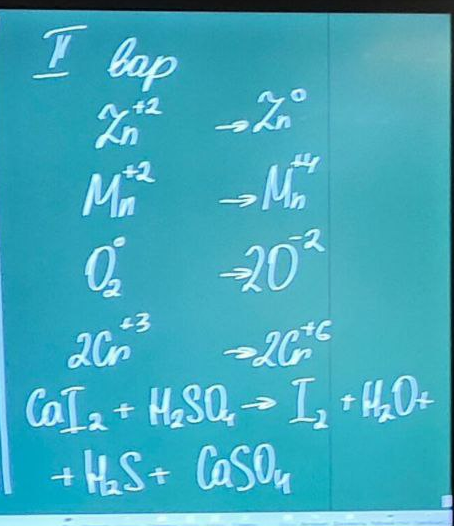 II вар
Zn⁺² → Zn⁰
Mn⁺² → Mn⁺⁴
O₂⁰ → 2O⁻²
2Cr⁺³ → 2Cr⁺⁶
CaI₂ + H₂SO₄ → I₂ + H₂O +
+ H₂S + CaSO₄